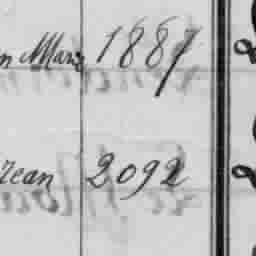 n Marie 1887
Jean 2092